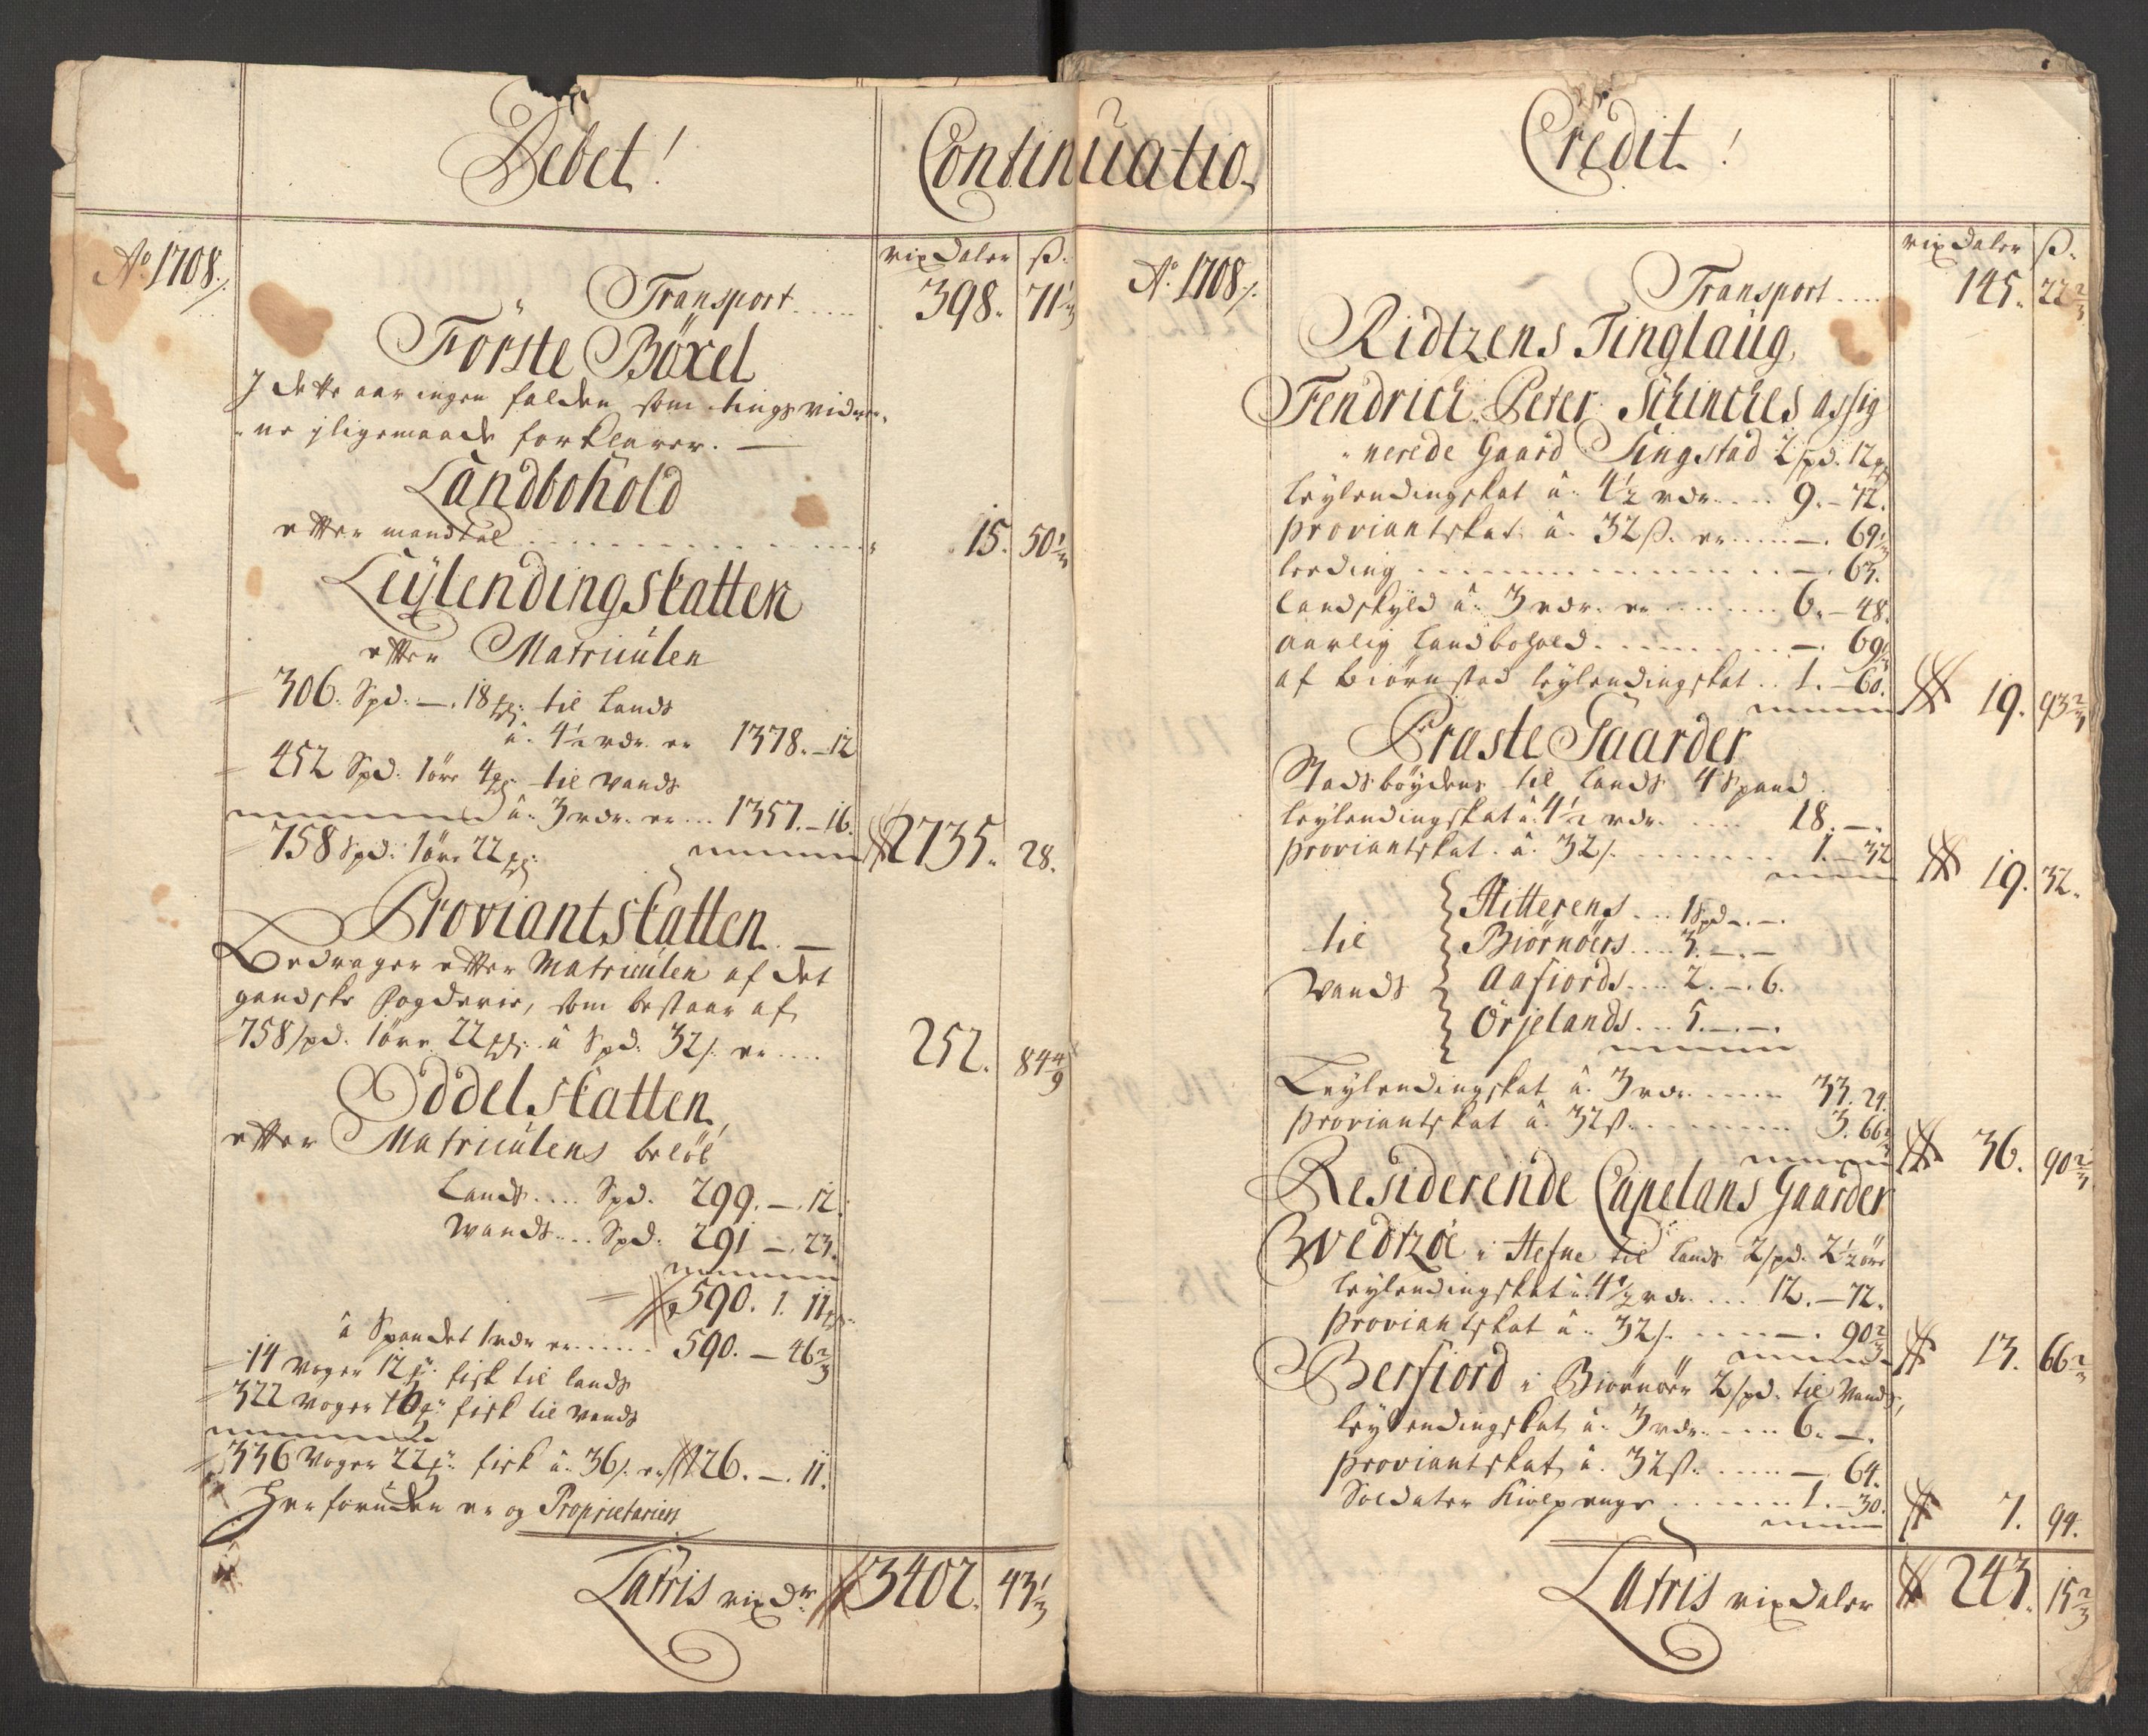 Debet!
Continuatio
Ao 1708 ./.
rixdaler ß.
Transport..... 398. 71 1/3
Förste Böxel
J dette aar ingen falden som tingsvidner-
ne jligemaade forklarer. —
Landbohold
efter mandtal .............. 15. 50 1/3
Leÿlendingskatten
efter Matriculen
306. Spd: —. 18 mkl: til Lands
â. 4½ rdr. er 1378. — 12
452 Spd: 1öre 4 mkl: til vands
â. 3 rdr. er... 1357. — 16.
758 Spd: 1öre 22 mkl: 2735. 28.
Proviantskatten. —
Bedrager efter Matriculen af det
gandske fogderie, som bestaar af
758 spd. 1öre 22 mkl: â Spd: 32 ß. er .... 252. 84 4/9
Oddelskatten,
efter Matriculens beløb
Lands.... Spd. 299. —. 12.
Wands... Spd: 291 —. 23.
590. 1. 11
â Spandet 1 rdr er..... 590. — 46 2/3
14 Voger 12 fisk til lands
322 Voger 10 fisk til vands
336 Voger 22 fisk â. 36 ß. er 126. —. 11.
Her foruden er og Proprietariers
Latris rixdr 3402. 43 1/3
Credit!
Ao. 1708 ./.
rixdaler ß.
Transport.... 145. 22 2/3
Ridtzens Tinglaug
Fendrich Peter Schinches assig
nerede Gaard Singstad 2 spd. 12
leylendingskat â. 4½ rdr.... 9. — 72.
proviantskat â. 32 ß. er..... —. 69 1/3
leeding .............. —. 63.
landskyld â. 3 rdr. er ....... 6. — 48.
aarlig landbohold......... —. 69 1/3
af Biörnstad leylendingskat.. 1. — 60. 19. 93 2/3
Præste Gaarder
Stadsböydens til Lands 4 Spand
leylendingskat â. 4½ rdr. .... 18. —.
proviantskat. â. 32 ß. ........ 1. — 32 19. 32.
til
Wands
Hitterens... 1 Spd —. —.
Biörnöers.... 3. —. —
Aafiords.... 2. —. 6.
Örjelands... 5. —. —.
Leylendingskat â. 3 rdr...... 33. 24.
proviantskat â. 32 ß. ......... 3. 66 2/3 36. 90 2/3
Residerende Capelans Gaarder
Wedtzöe i Hefne til Lands 2 spd. 2½ öre
leylendingskat â. 4½ rdr. ... 12. — 72.
proviantskat â. 32 ß. ..... —. 90 2/3 13. 66 2/3
Berfiord i Biörnöer 2 spd. til Vands,
leylendingskat â. 3 rdr..... 6. —.
proviantskat â. 32 ß. ..... —. 64.
Soldater Kiolpenge ...... 1. — 30. 7. 94.
Latris rixdaler 243. 15 2/3